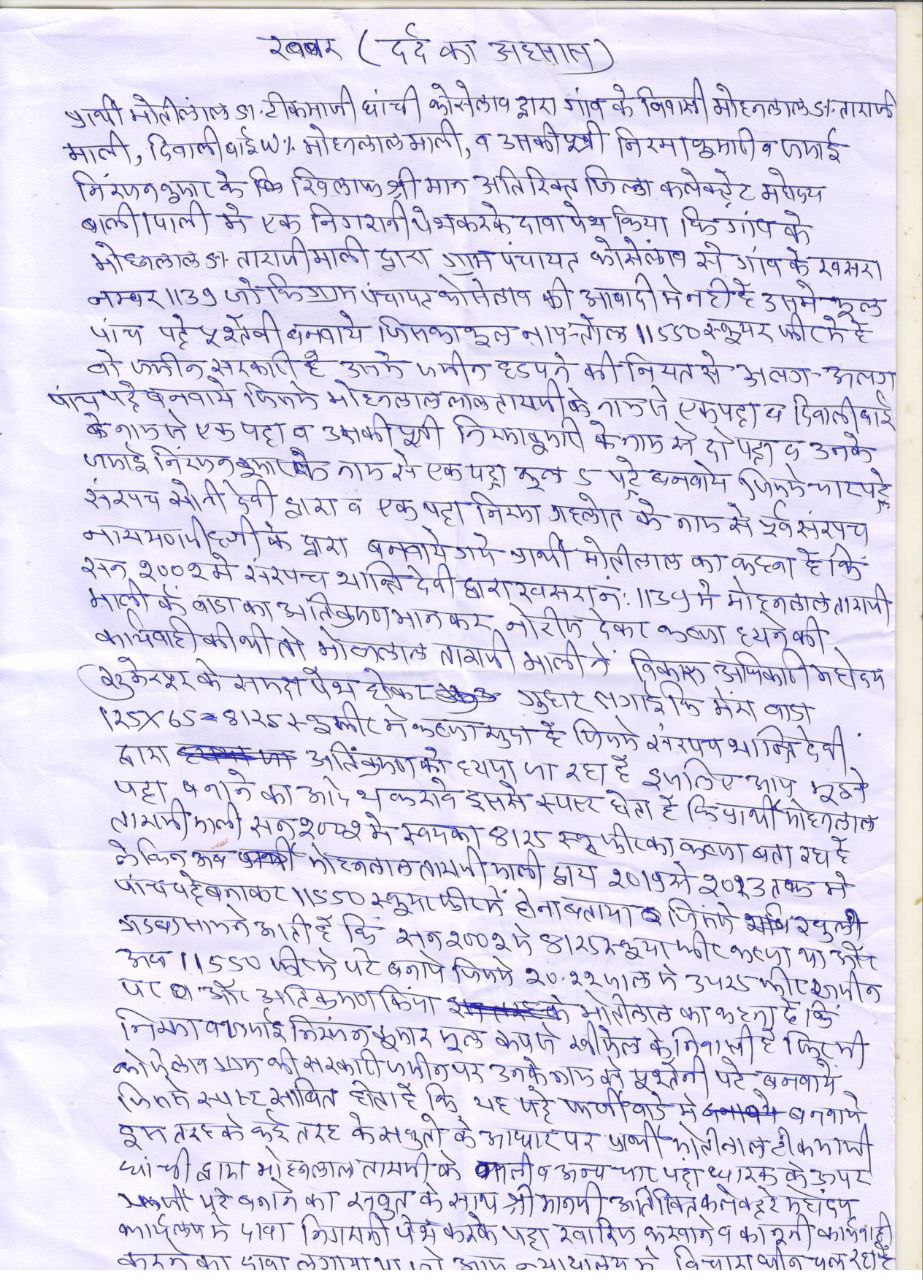 खबर (दर्द का अहसास)
प्रार्थी मोतीलाल S/o टीकमाजी घांची कोसेलाव द्वारा गांव के निवासी मोहनलाल S/o ताराजी
माली, दिवालीबाई W/o मोहनलाल माली, व उसकी पुत्री निरमा कुमारी व जमाई
निरंजन कुमार के कि खिलाफ श्री मान अतिरिक्त जिला कलेक्ट्रेट महोदय
बाली पाली मे एक निगरानी पेश करके दावा पेश किया कि गांव के
मोहनलाल S/o ताराजी माली द्वारा ग्राम पंचायत कोसेलाव से गांव के खसरा
नम्बर 1139 जो कि ग्राम पंचायत कोसेलाव की आबादी मे नही है उसमे कुल
पांच पट्टे पुश्तैनी बनवाये जिनका कुल नाप-तोल 11550 स्कूयर फीट मे है
वो जमीन सरकारी है उसमे जमीन हडपने की नियत से अलग-अलग
पांच पट्टे बनवाये जिसमे मोहनलाल लाल ताराजी के नाम से एक पट्टा व दिवाली बाई
के नाम से एक पट्टा व उसकी पुत्री निरमा कुमारी के नाम से दो पट्टा व उनके
जमाई निरंजन कुमार के नाम से एक पट्टा कुल 5 पट्टे बनवाये जिसमे चार पट्टे
सरपंच सोनी देवी द्वारा व एक पट्टा निरमा गहलोत के नाम से पूर्व सरपंच
के द्वारा बनवाये गये प्रार्थी मोतीलाल का कहना है कि
सन 2002 मे सरपन्च शान्ति देवी द्वारा खसरा नं. 1139 मे मोहनलाल ताराजी
माली के वाडा का अतिक्रमण मानकर नोटीस देकर कब्जा हटाने की
कार्यवाही की थी तो मोहनलाल ताराजी माली ने विकास अधिकारी महोदय
सुमेरपुर के समक्ष पेश होकर गुहार लगाई कि मेरा वाडा
125X65=8125 स्कू फीट मे कब्जा सुदा है जिसमे सरपंच शान्ति देवी
द्वारा अतिक्रमण को हटाया जा रहा है इसलिए आप मुझे
पट्टा बनाने का आदेश करावे इससे स्पष्ट होता है कि प्रार्थी मोहनलाल
ताराजी माली सन 2002 मे स्वयंका 8125 स्कू फीट का कब्जा बता रहा है
लेकिन अब मोहनलाल ताराजी माली द्वारा 2019 से 2023 तक मे
पांच पट्टे बनाकर 11550 स्कूयर फीट मे होना बताया जिसमे खुली
सामने आती है कि सन 2002 मे 8125 स्कूयर फीट कब्जा था और
अब 11550 फीट मे पट्टे बनाये जिसमे 20-22 साल मे 3425 फीट जमीन
पर और अतिक्रमण किया मोतीलाल का कहना है कि
निरमा व जमाई निरंजन कुमार मूल रूप से के निवासी है फिर भी
कोसेलाव ग्राम की सरकारी जमीन पर उनके नाम के पुश्तैनी पट्टे बनवाये
जिससे स्पष्ट साबित होता है कि यह पट्टे फर्जीवाडे मे बनवाये
इस तरह के कई तरह के सबुतो के आधार पर प्रार्थी मोतीलाल टीकमाजी
घांची द्वारा मोहनलाल ताराजी के व अन्य चार पट्टा धारक के ऊपर
फर्जी पट्टे बनाने का सबूत के साथ श्री मानजी अतिरिक्त कलेक्टर महोदय
कार्यालय मे दावा निगरानी पेश करके पट्टा खारिज करवाने व कानूनी कार्यवाही
करने का दावा लगाया न्यायालय मे विचाराधीन चल रहा है